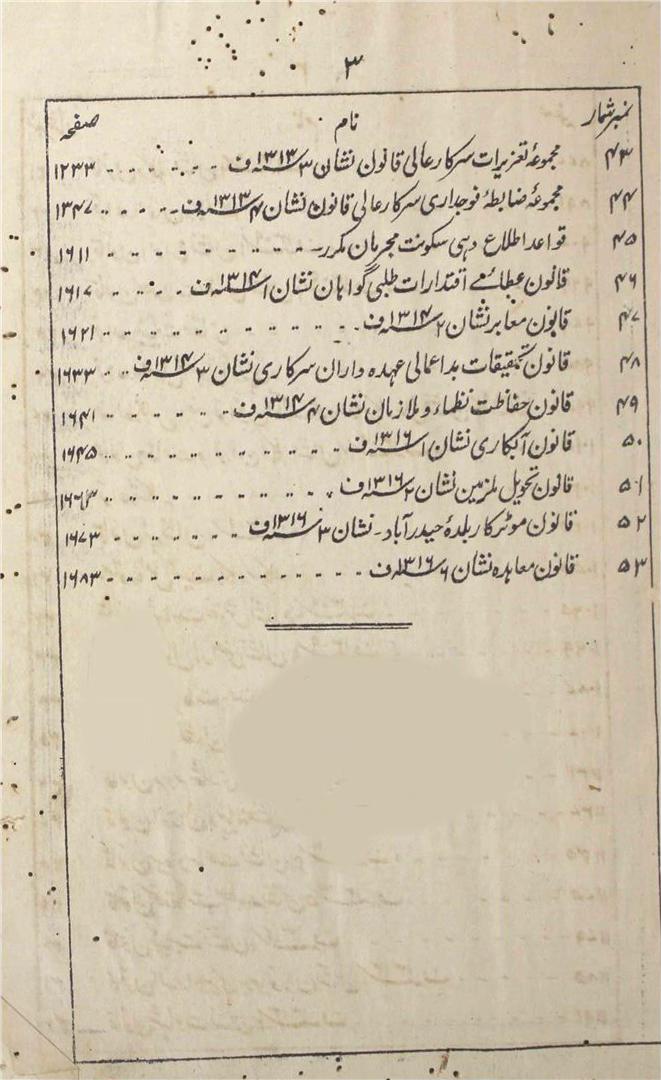 ۳
نمبر شمار نام صفحہ
۴۳ مجموعۂ تعزیرات سرکار عالی قانون نشان ۳ سنہ ۱۳۱۳ ف ۱۲۳۳
۴۴ مجموعۂ ضابطۂ فوجداری سرکار عالی قانون نشان ۴ سنہ ۱۳۱۳ ف ۱۳۴۷
۴۵ قواعد اطلاع دہی سکونت مجرمان مکرر ۱۶۱۱
۴۶ قانون عطائے اقتدارات طلبی گواہان نشان ۱ سنہ ۱۳۱۴ ف ۱۶۱۷
۴۷ قانون معابر نشان ۲ سنہ ۱۳۱۴ ف ۱۶۲۱
۴۸ قانون تحقیقات بداعمالی عہدہ داران سرکاری نشان ۳ سنہ ۱۳۱۴ ف ۱۶۳۳
۴۹ قانون حفاظت نظماء و ملازمان نشان ۴ سنہ ۱۳۱۴ ف ۱۶۴۱
۵۰ قانون آبکاری نشان ۱ سنہ ۱۳۱۶ ف ۱۶۴۵
۵۱ قانون تحویل ملزمین نشان ۲ سنہ ۱۳۱۶ ف
۵۲ قانون موٹر کار بلدۂ حیدرآباد۔ نشان ۳ سنہ ۱۳۱۶ ف ۱۶۷۳
۵۳ قانون معاہدہ نشان ۶ سنہ ۱۳۱۶ ف ۱۶۸۳